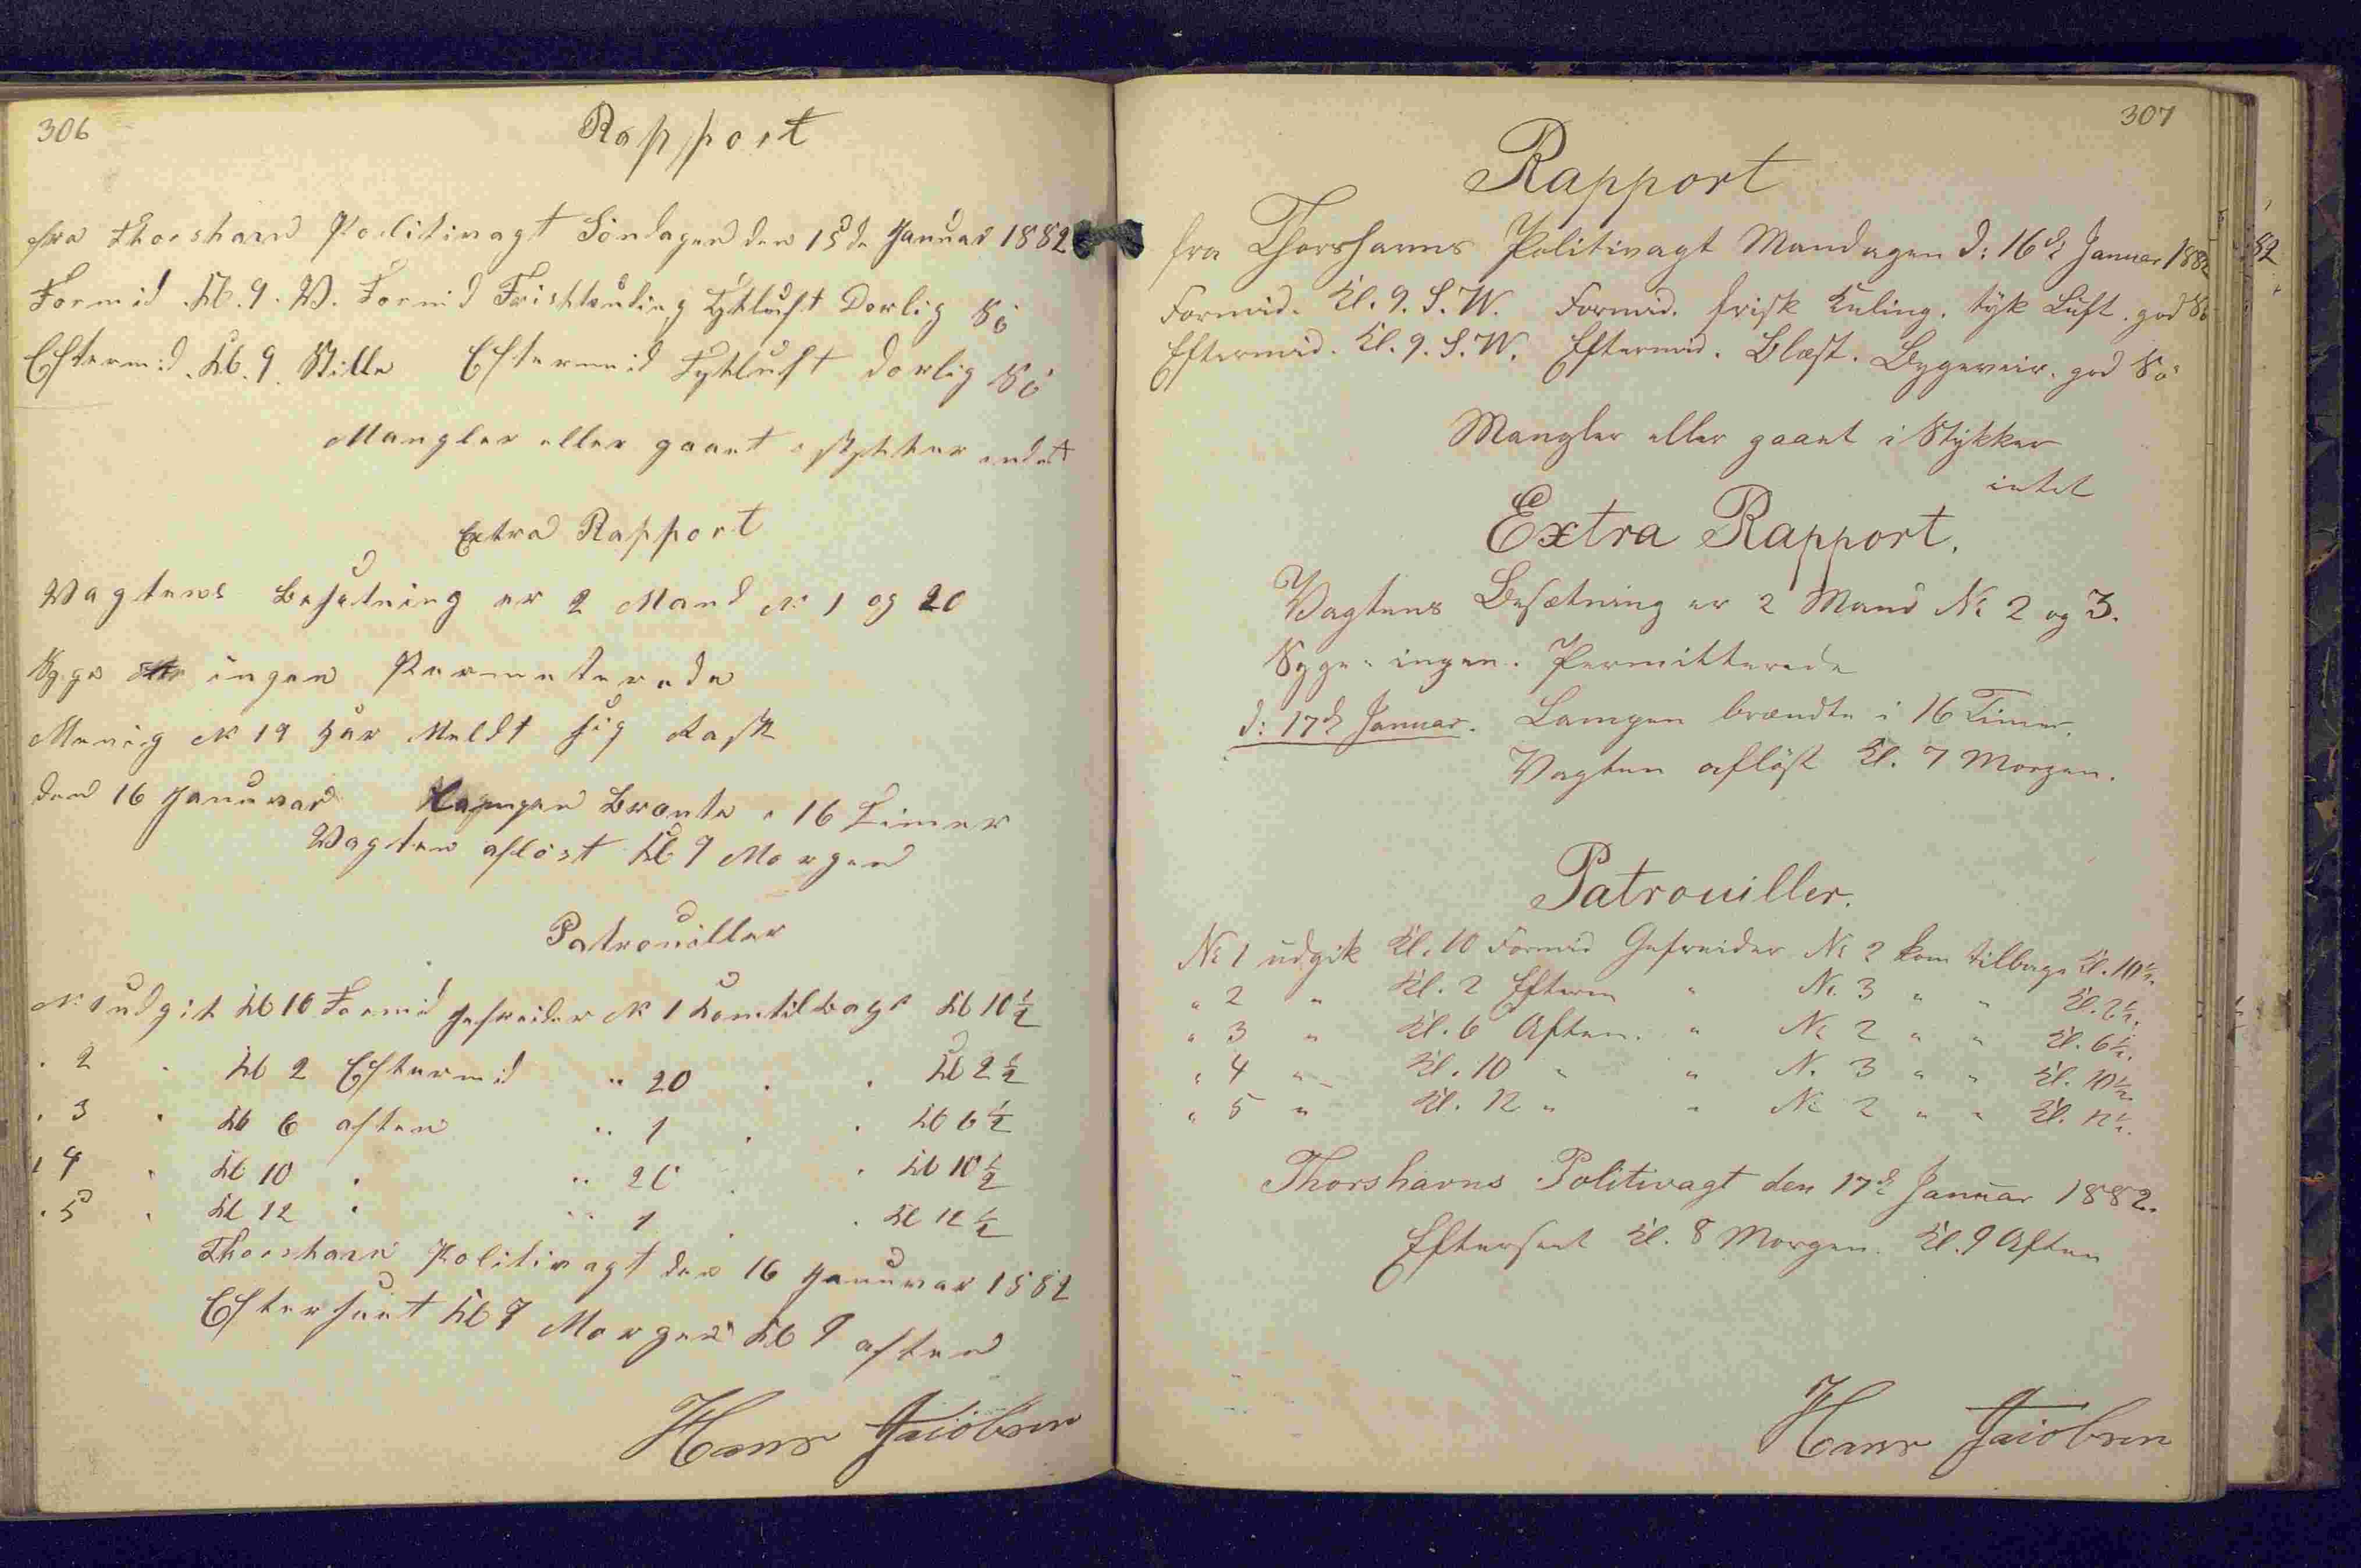 306
Rapport
fra Thorshavn Politivagt Söndagen den 15de Januar 1882
Formid. Kl. 9. V. Formid Frisk kuling Tykluft Dorlig Sö
Eftermid. Kl. 9. Stille Eftermid Tykluft dorlig Sö
Mangler eller gaaet i stykker indet
Extra Rapport
Vagtens Besetning er 2 Mand N 1 og 20
Syge ingen Permeterede
Menig N 19 har Meldt sig Rask
den 16 Januvar Lampen Brante i 16 Timer
Vagten aflöst Kl 9 Morgen
Patrouiller
N 1 udgik Kl 10 Formid Gefreider N 1 kom tilbage Kl 10 1/2
" 2 " Kl 2 Eftermid " 20 " " Kl 2 1/2
" 3 " Kl 6 aften " 1 " " Kl 6 1/2
" 4 " Kl 10 " " 20 " " Kl 10 1/2
" 5 " Kl 12 " " 1 " " Kl 12 1/2
Thorshavn Politivagt den 16 Januvar 1882
Efterseet Kl 8 Morgen Kl 9 aften
Hans Jaiobsen
307
Rapport
fra Thorshavns Politivagt Mandagen d: 16de Januar 1882
Formid. Kl. 9. S.W. Formid. frisk Kuling. tyk Luft. god Sö
Eftermid. Kl. 9. S.W. Eftermid. Blæst. Bygeveir. god Sö
Mangler eller gaaet i Stykker
intet
Extra Rapport.
Vagtens Besætning er 2 Mand No 2 og 3.
Syge " ingen. Permitterede
d: 17de Januar. Lampen brændte i 16 Timer.
Vagten aflöst Kl. 7 Morgen.
Patrouiller.
No 1 udgik Kl. 10 Formid Gefreider No 2 kom tilbage Kl. 10 1/2.
" 2 " Kl. 2 Efterm " No. 3 " " Kl. 2 1/2.
" 3 " Kl. 6 Aften. " No 2 " " Kl. 6 1/2.
" 4 " Kl. 10 " " No. 3 " " Kl. 10 1/2.
" 5 " Kl. 12 " " No 2 " " Kl. 12 1/2.
Thorshavns Politivagt den 17de Januar 1882.
Efterseet Kl. 8 Morgen. Kl. 9 Aften
Hans Jaiobsen
82